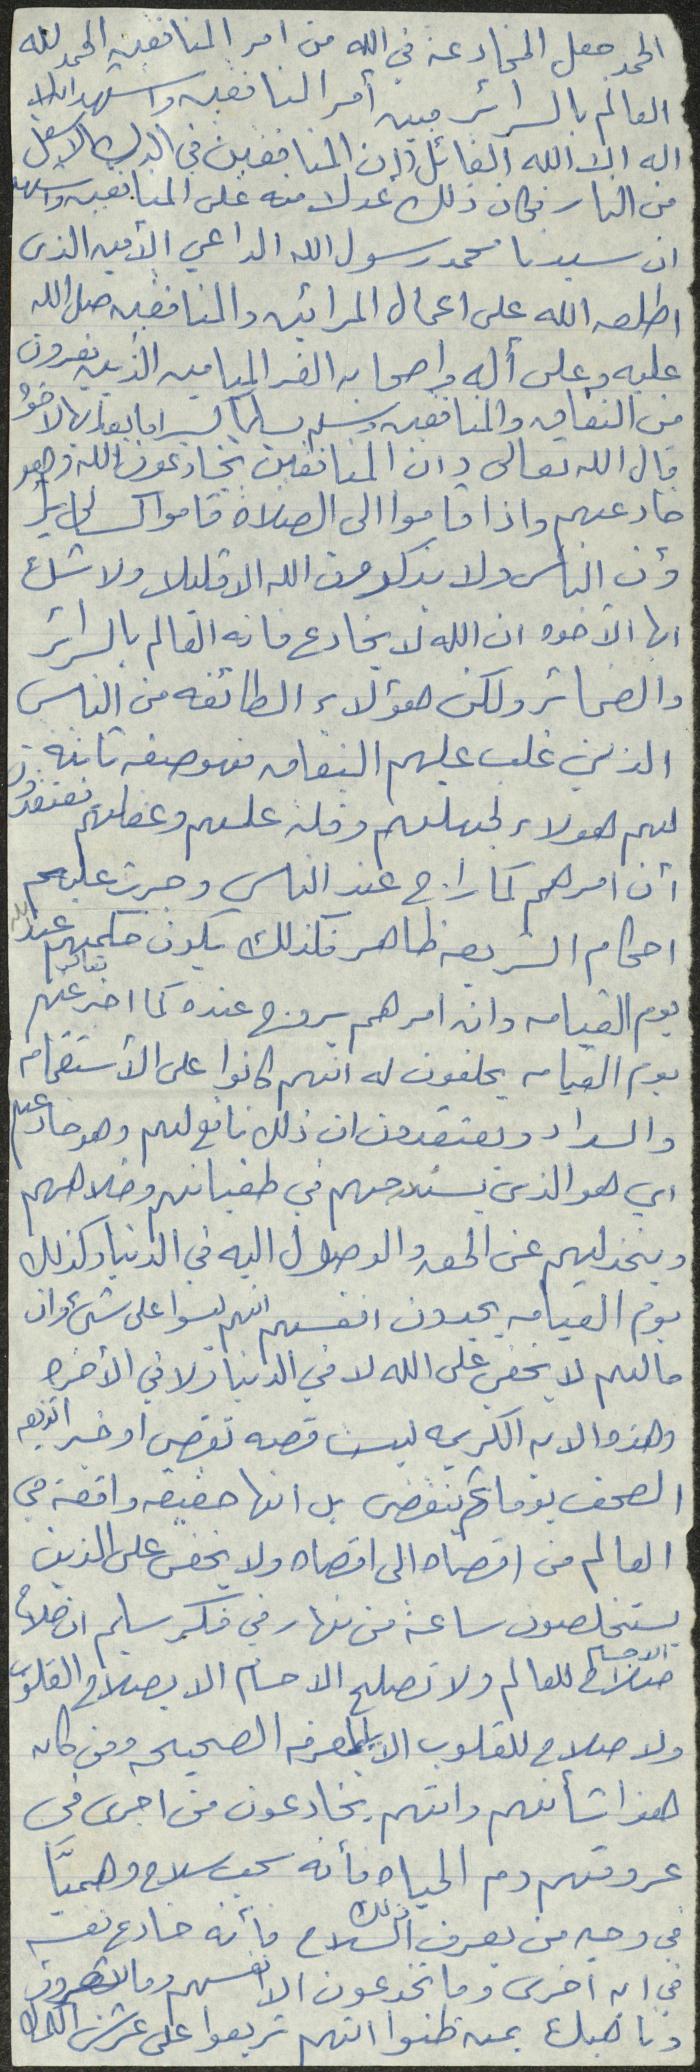 الحمد جعل المخادعة في الله من امر المنافقين الحمد لله
العالم بالسرائر مبين أمر المنافقين واشهد ان لا
اله الا الله القائل (ان المنافقين في الدرك الاسفل
من النار فكان ذلك عدلا منه على المنافقين واشهد
ان سيدنا محمد رسول الله الداعي الأمين الذي
اطلعه الله على اعمال المرائين والمنافقين صل الله
عليه وعلى أله واصحابه الغر الميامين الذين يفرون
من النفاق والمنافقين وسلم تسليما كثيرا اما بعد ايها الاخوة
قال الله تعالى (ان المنافقين يخادعون الله وهو
خادعهم واذا قاموا الى الصلاة قاموا كسالى يرآ
ؤن الناس ولا يذكرون الله الا قليلا ولا شك
ايها الأخوه ان الله لا يخادع فانه العالم بالسرائر
والضمائر ولكن هؤلاء الطائفه من الناس
الذين غلب عليهم النفاق فهو صفه ثابتة
لهم هولاء لجهلهم وقلة علمهم وعقلهم يعتقدون
أن امرهم كما راج عند الناس وجرت عليهم
احكام الشريعه ظاهر فكذلك يكون حكمهم عند الله
يوم القيامه وان امرهم يروج عنده كما اخبر تعالى عنهم
يوم القيامه يحلفون له انهم كانوا على الأستقامه
والسداد ويعتقدون ان ذلك نافع لهم وهو خادعهم
اي هو الذي يستدرجهم في طغيانهم وضلالهم
ويخذلهم عن الحق والوصول اليه في الدنيا وكذلك
يوم القيامه يجدون انفسهم انهم ليسوا على شئ وان
مالهم لا يخفى على الله لا في الدنيا ولا في الأخره
وهذه الايه الكريمه ليست قصه تقص او خبر تذيعه
الصحف يوما ثم ينقضي بل انها حقيقه واقعة في
العالم من اقصاه الى اقصاه ولا يخفى على الذين
يستخلصون ساعة من نهار في فكر سليم ان صلاح
الاجسام صلاح للعالم ولا تصلح الاجسام الا بصلاح القلوب
ولا صلاح للقلوب الا بالمعرفه الصحيحه ومن كان
هذا شأنهم وانهم يخادعون من اجرى في
عروقهم دم الحياه فأنه سحب سلاح وهميًّا
في وجه من يعرف ذلك السلاح فأنه خادع نفسه
في ايه اخرى وما يخدعون الا انفسهم وما يشعرون
وناهيك بمن ظنوا انهم تربعوا على عرش